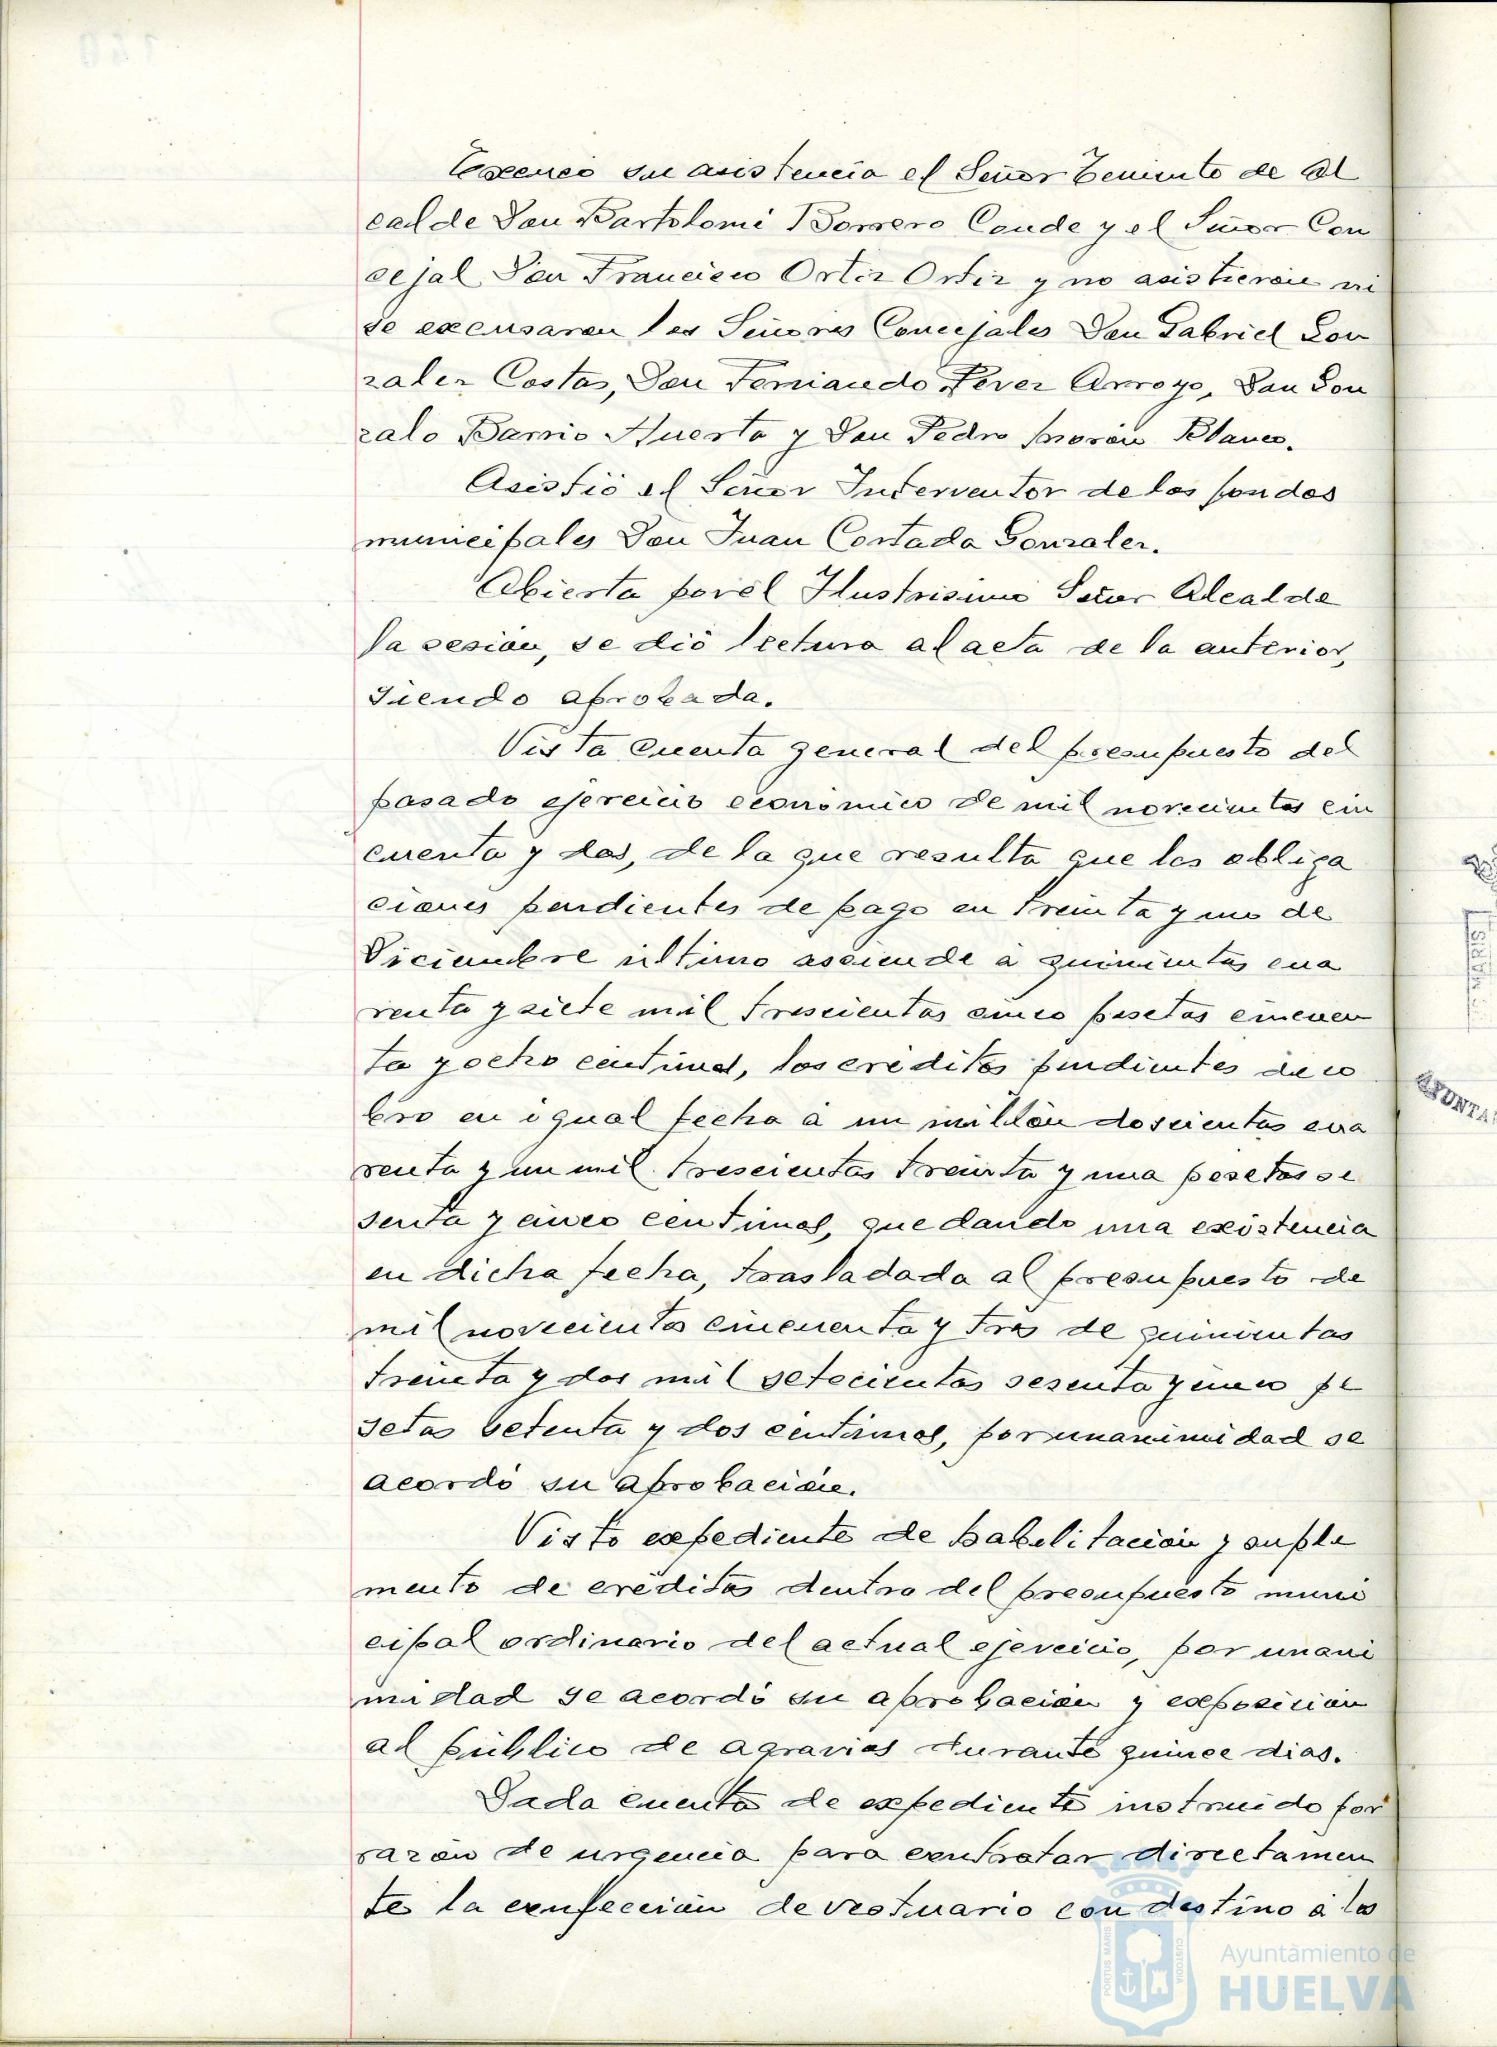 Excusó su asistencia el Señor Teniente de Al
calde Don Bartolomé Borrero Conde y el Señor Con
cejal Don Francisco Ortiz Ortiz y no asistieron ni
se excusaron los Señores Concejales Don Gabriel Gon
zalez Costas, Don Fernando Perez Arroyo, Don Gon
zalo Barrio Huerta y Don Pedro Morón Blanco.
Asistió el Señor Interventor de los fondos
municipales Don Juan Contada Gonzalez.
Abierta por el Ilustrisimo Señor Alcalde
la sesión, se dió lectura al acta de la anterior,
siendo aprobada.
Vista cuenta general del presupuesto del
pasado ejercicio económico de mil novecientos cin
cuenta y dos, de la que resulta que las obliga
ciones pendientes de pago en treinta y uno de
Diciembre último asciende á quinientas cua
renta y siete mil trescientas cinco pesetas cincuen
ta y ocho centimos, los créditos pendientes de co
bro en igual fecha á un millón doscientas cua
renta y un mil trescientas treinta y una pesetas se
senta y cinco centimos, quedando una existencia
en dicha fecha, trasladada al presupuesto de
mil novecientos cincuenta y tres de quinientas
treinta y dos mil setecientas sesenta y cinco pe
setas setenta y dos centimos, por unanimidad se
acordó su aprobación.
Visto expediente de habilitación y suple
mento de créditos dentro del presupuesto muni
cipal ordinario del actual ejercicio, por unani
midad se acordó su aprobación y exposición
al público de agravios durante quince dias.
Dada cuenta de expediente instruido por
razón de urgencia para contratar directamen
te la confección de vestuario con destino á los
PORTUS MARIS CUSTODIA
Ayuntamiento de
HUELVA
AYUNTA